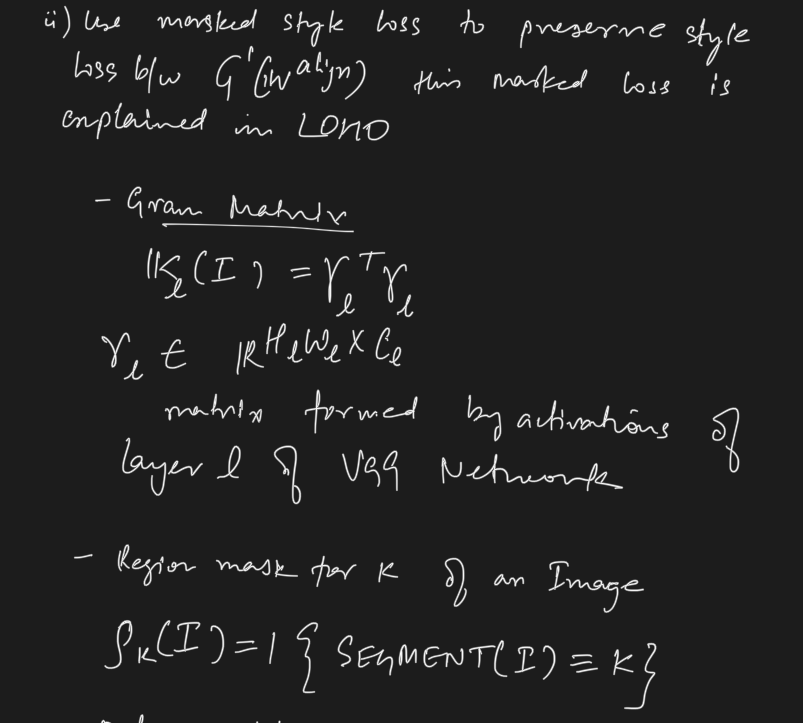 ii) Use masked style loss to preserve style
loss b/w G'(w^align) this masked loss is
explained in LOHO
- Gram Matrix
K_l(I) = γ_l^T γ_l
γ_l ∈ ℝ^H_lW_l×C_l
matrix formed by activations of
layer l of VGG Network
- Region mask for K of an Image
ρ_K(I) = 1{SEGMENT(I) ≡ K}